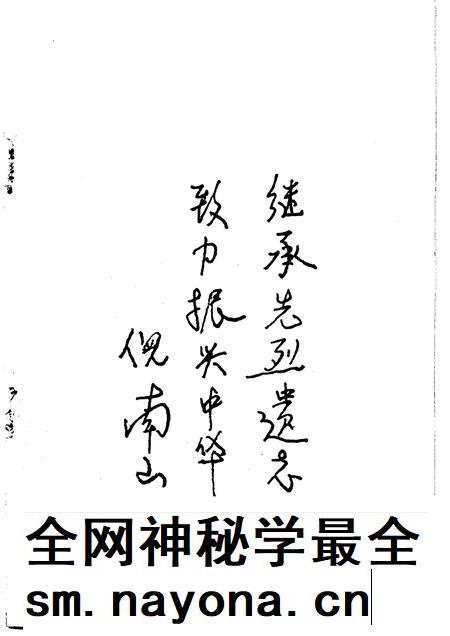 继承先烈遗志
致力振兴中华
倪南山
全网神秘学最全
sm.nayona.cn